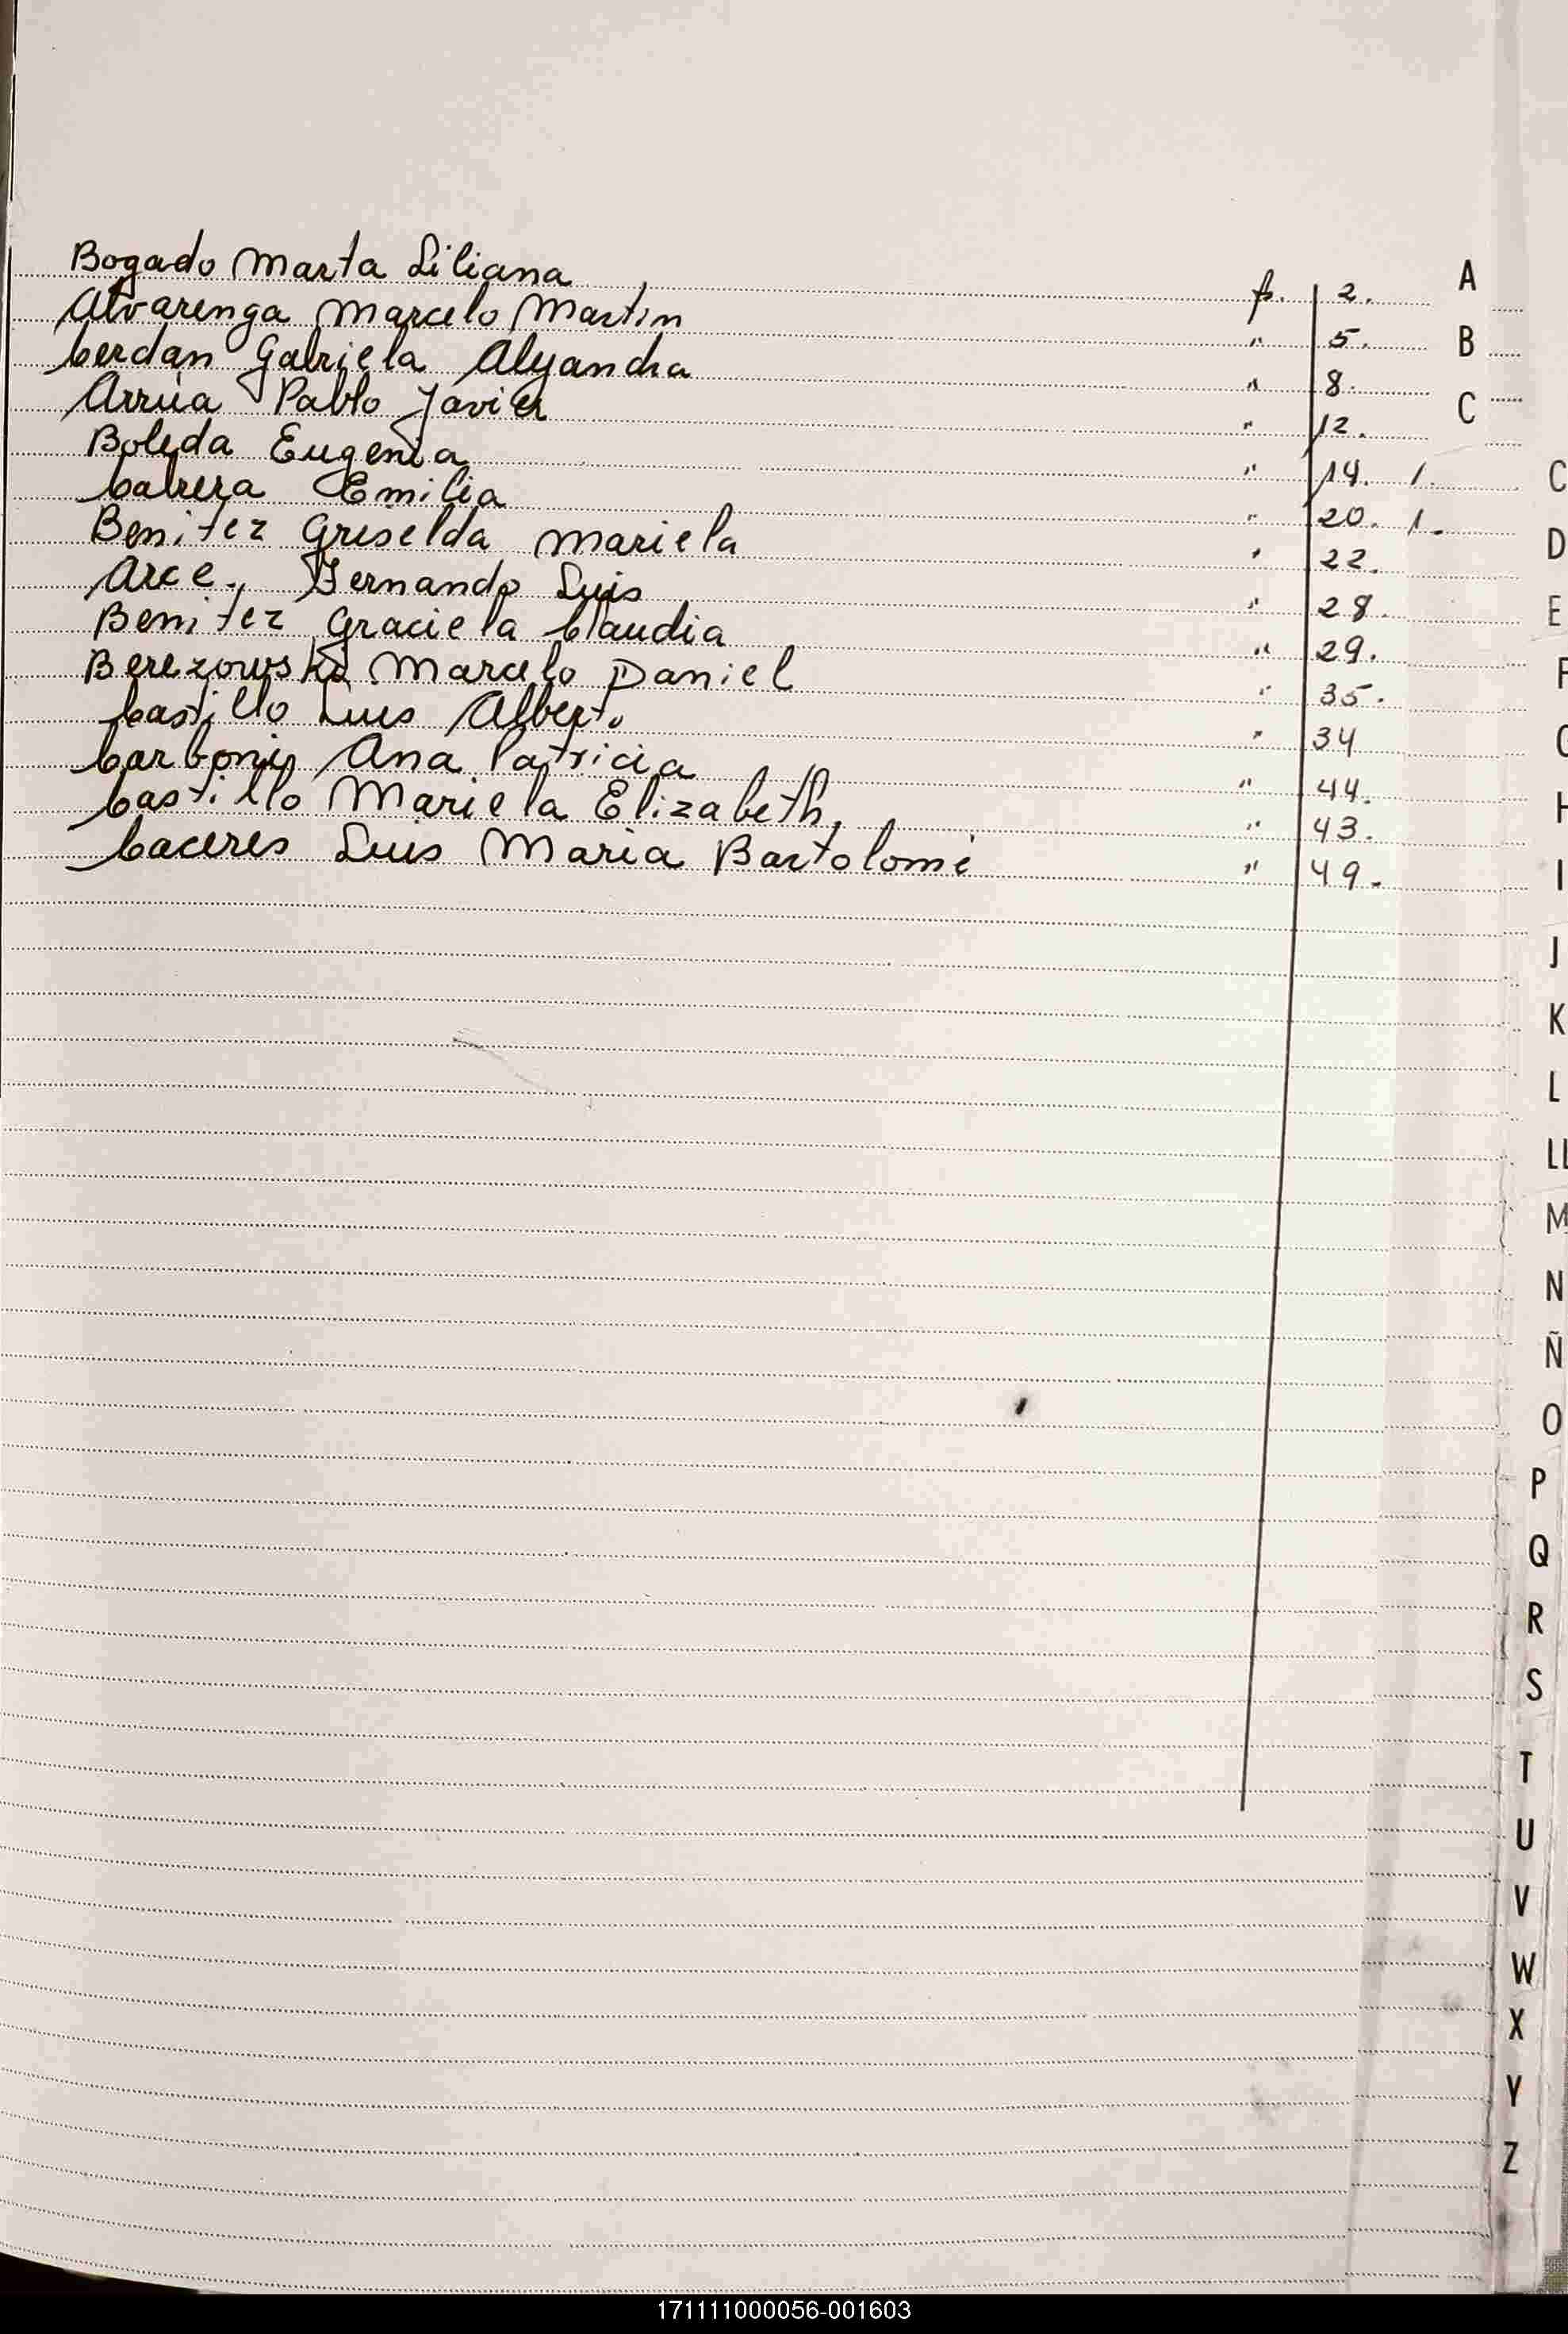 Bogado Marta Liliana f. 2.
Alvarenga Marcelo Martin " 5.
Cerdan Gabriela Alejandra " 8.
Arrúa Pablo Javier " 12.
Boleda Eugenia " 14. 1.
Cabrera Emilia " 20. 1.
Benitez Griselda Mariela " 22.
Arce, Fernando Luis " 28.
Benitez Graciela Claudia " 29.
Berezowski Marcelo Daniel " 35.
Castillo Luis Alberto " 34
Carbonip Ana Patricia " 44.
Castillo Mariela Elizabeth. " 43.
Caceres Luis Maria Bartolomé " 49.
A
B
C
C
D
E
F
H
I
J
K
L
LL
M
N
Ñ
O
P
Q
R
S
T
U
V
W
X
Y
Z
171111000056-001603